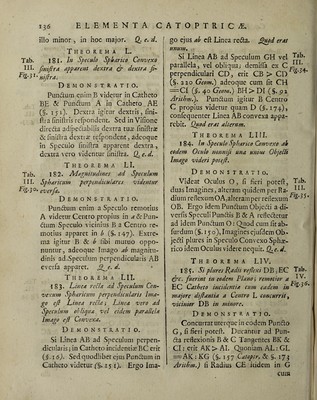 136 ELEMENTA CATOPTRICÆ.
illo minor, in hoc major. Q. e. d.
THEOREMA L.
Tab. III. Fig. 31.
181. In Speculo Sphærico Convexo
sinistra apparent dextra & dextra si-
nistra.
DEMONSTRATIO.
Punctum enim B videtur in Catheto
BE & Punctum A in Catheto AE
(§. 151). Dextra igitur dextris, sini-
stra sinistris respondent. Sed in Visione
directa adspectabilis dextra tuæ sinistræ
& sinistra dextræ respondent, adeoque
in Speculo sinistra apparent dextra,
dextra vero videntur sinistra. Q. e. d.
THEOREMA LI.
Tab. III. Fig. 32.
182. Magnitudines ad Speculum
Sphæricum perpendiculares videntur
eversæ.
DEMONSTRATIO.
Punctum enim a Speculo remotius
A videtur Centro propius in a & Pun-
ctum Speculo vicinius B a Centro re-
motius apparet in b (§. 147). Extre-
ma igitur B & b sibi mutuo oppo-
nuntur, adeoque Imago ab magnitu-
dinis ad Speculum perpendicularis AB
eversa apparet. Q. e. d.
THEOREMA LII.
183. Lineæ rectæ ad Speculum Con-
vexum Sphæricum perpendicularis Ima-
go est Linea recta; Lineæ vero ad
Speculum obliquæ vel eidem parallelæ
Imago est Convexa.
DEMONSTRATIO.
Si Linea AB ad Speculum perpen-
dicularis; in Catheto incidentiæ BC erit
(§. 16). Sed quodlibet ejus Punctum in
Catheto videtur (§. 151). Ergo Ima-
go ejus ab est Linea recta. Quod erat
unum.
Tab. III. Fig. 34.
Si Linea AB ad Speculum GH vel
parallela, vel obliqua; demissa ex C
perpendiculari CD, erit CB > CD
(§. 220 Geom.) adeoque cum sit CH
= CI (§. 40 Geom.) BH > DI (§. 92
Arithm.). Punctum igitur B Centro
C propius videtur quam D (§. 174),
consequenter Linea AB convexa appa-
rebit. Quod erat alterum.
THEOREMA LIII.
184. In Speculo Sphærico Convexo ab
eodem Oculo nonnisi una unius Objecti
Imago videri potest.
DEMONSTRATIO.
Tab. III. Fig. 35.
Videat Oculus O, si fieri potest,
duas Imagines, alteram quidem per Ra-
dium reflexum OA, alteram per reflexum
OB. Ergo idem Punctum Objecti a di-
versis Speculi Punctis B & A reflectetur
ad idem Punctum O: Quod cum sit ab-
surdum (§. 150), Imagines ejusdem Ob-
jecti plures in Speculo Convexo Sphæ-
rico idem Oculus videre nequit. Q. e. d.
THEOREMA LIV.
Tab. IV. Fig. 36.
185. Si plures Radii reflexi DB, EC
&c. fuerint in eodem Plano; remotior a
EC Catheto incidentiæ cum eadem in
majore distantia a Centro L concurrit,
vicinior DB in minore.
DEMONSTRATIO.
Concurrat uterque in eodem Puncto
G, si fieri potest. Ducantur ad Pun-
cta reflexionis B & C Tangentes BK &
CI: erit AK > AI. Quoniam AL: GL
= AK: KG (§. 157 Catoptr. & §. 173
Arithm.) si Radius CE iudem in G
cum